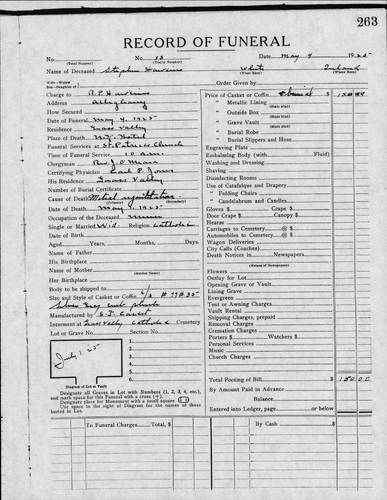 263
RECORD OF FUNERAL
No. 53 (Yearly Number) Date May 4 1925
Name of Deceased Stephen Hawkins White (What Race) Ireland (Where Born)
Wife - Widow
Son - Daughter of
Order Given by
Charge to R.P. Hawkins
Address Alleghany
How Secured
Date of Funeral May 4, 1925
Residence Grass Valley
Place of Death
Funeral Services at St Patricks Church
Time of Funeral Service 10 a.m.
Clergyman Rev. J. O'Mara
Certifying Physician Carl P. Jones
His Residence Grass Valley
Number of Burial Certificate
Cause of Death Mitral regurgitation
Date of Death May 1925
Occupation of the Deceased Miner
Single or Married Wid Religion Catholic
Date of Birth
Aged Years, Months, Days.
Name of Father
His Birthplace
Name of Mother (Maiden Name)
Her Birthplace
Body to be shipped to
Size and Style of Casket or Coffin 6/3 # 79 # 35
Silver Grey
Manufactured by
Interment at Grass Valley Catholic Cemetery
Lot or Grave No. Section No.
July 1, 25
1
2
3
4
5
6
Diagram of Lot or Vault
Designate all Graves in Lot with Numbers (1, 2, 3, 4, etc.),
and mark space for this Funeral with a cross (+).
Designate place for Monument with a small square
Use space to the right of Diagram for the names of those
buried in Lot.
Price of Casket or Coffin
" Metallic Lining (State kind)
" Outside Box (State kind)
" Grave Vault (State kind)
" Burial Robe (State kind)
" Burial Slippers and Hose
Engraving Plate
Embalming Body (with Fluid)
Washing and Dressing
Shaving
Disinfecting Rooms
Use of Catafalque and Drapery
" Folding Chairs
" Candelabrum and Candles
Gloves $ Crape $
Door Crape $ Canopy $
Hearse
Carriages to Cemetery @ $
Automobiles to Cemetery @ $
Wagon Deliveries
City Calls (Coaches)
Death Notices in Newspapers
(Names of Newspapers)
Flowers
Outlay for Lot
Opening Grave or Vault
Lining Grave
Evergreen
Tent or Awning Charges
Vault Rental
Shipping Charges, prepaid
Removal Charges
Cremation Charges
Porters $ Watchers $
Personal Services
Music
Church Charges
Total Footing of Bill $ 150 00
By Amount Paid in Advance
Balance
Entered into Ledger, page or below
To Funeral Charges Total, $
By Cash $